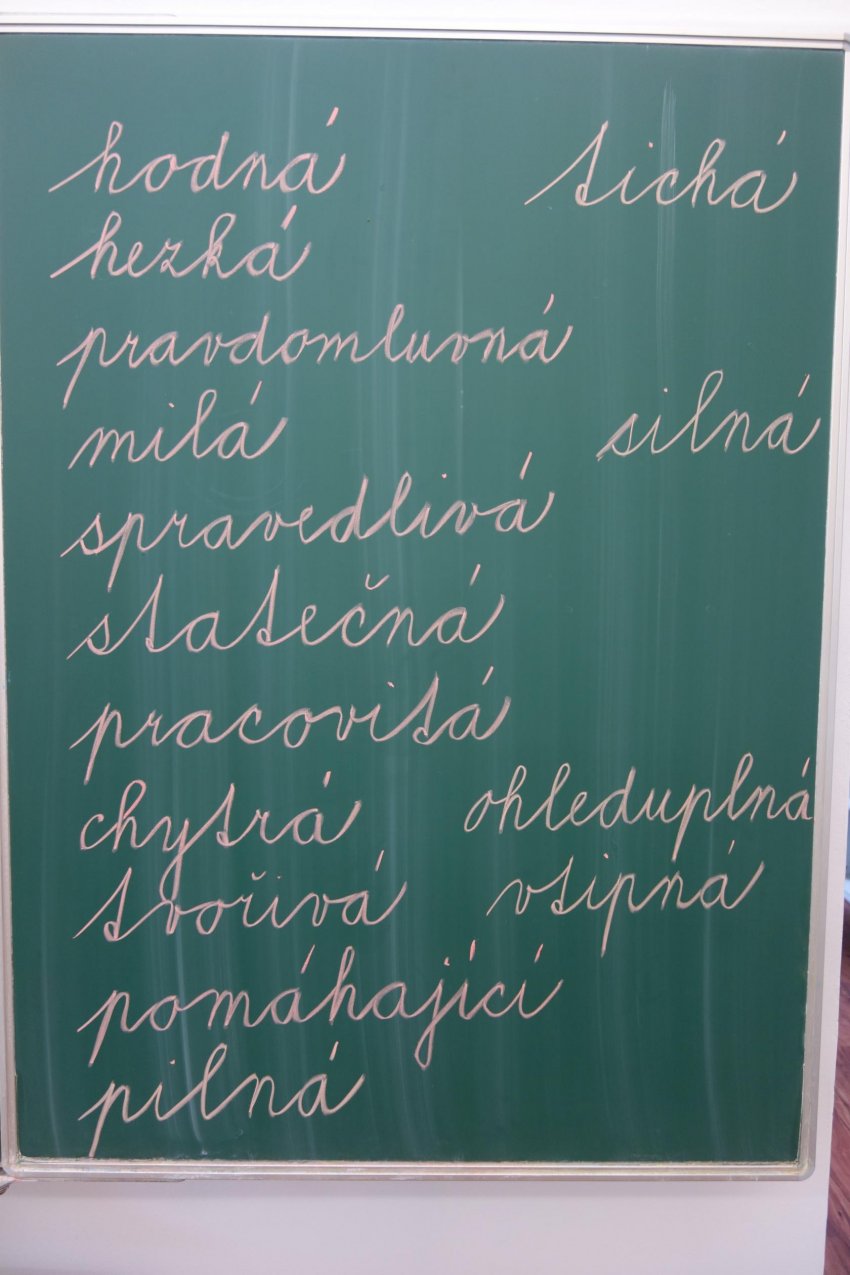 hodná tichá
hezká
pravdomluvná
milá silná
spravedlivá
statečná
pracovitá
chytrá ohleduplná
tvořivá vtipná
pomáhající
pilná